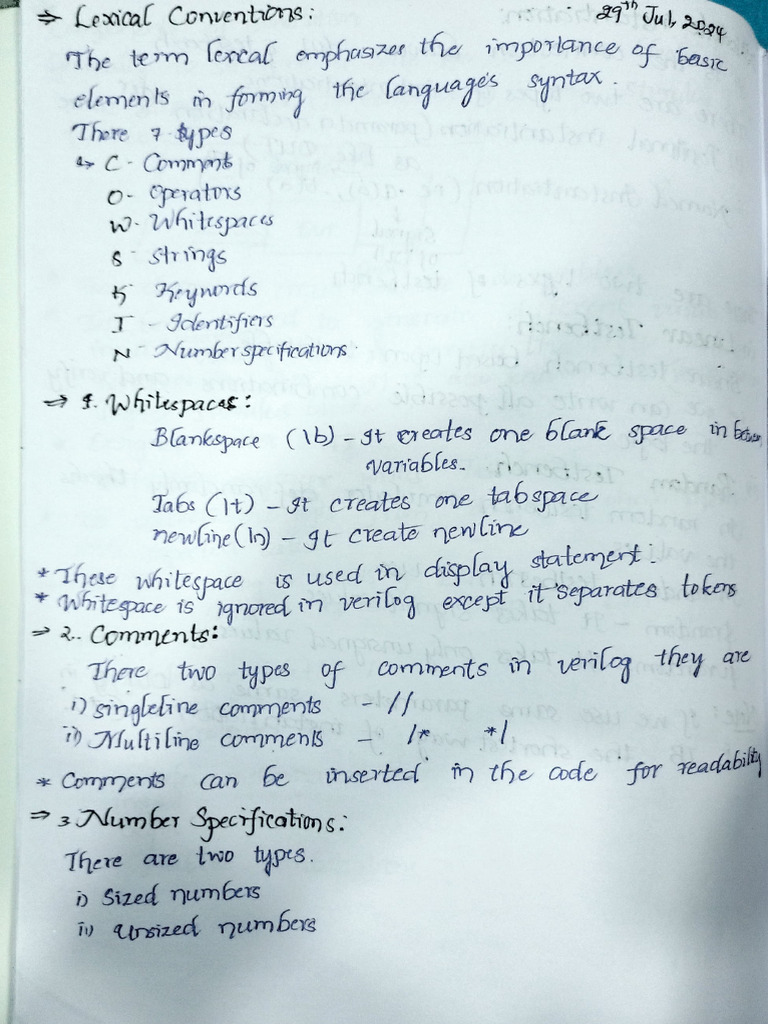 ⇒ Lexical Conventions:
29th Jul, 2024
The term lexical emphasizes the importance of basic
elements in forming the language's syntax.
There 7 types
↳ C - Comment
O - Operators
W - Whitespaces
S - Strings
K Keywords
I - Identifiers
N - Number specifications
⇒ 1. Whitespaces:
Blankspace (\b) - It creates one blank space in between
variables.
Tabs (\t) - It creates one tab space
newline (\n) - It create newline
* These whitespace is used in display statement.
* Whitespace is ignored in verilog except it separates tokens
⇒ 2. Comments:
There two types of comments in verilog they are
i) singleline comments - //
ii) Multiline comments - /* */
* Comments can be inserted in the code for readability
⇒ 3. Number Specifications:
There are two types.
i) Sized numbers
ii) Unsized numbers